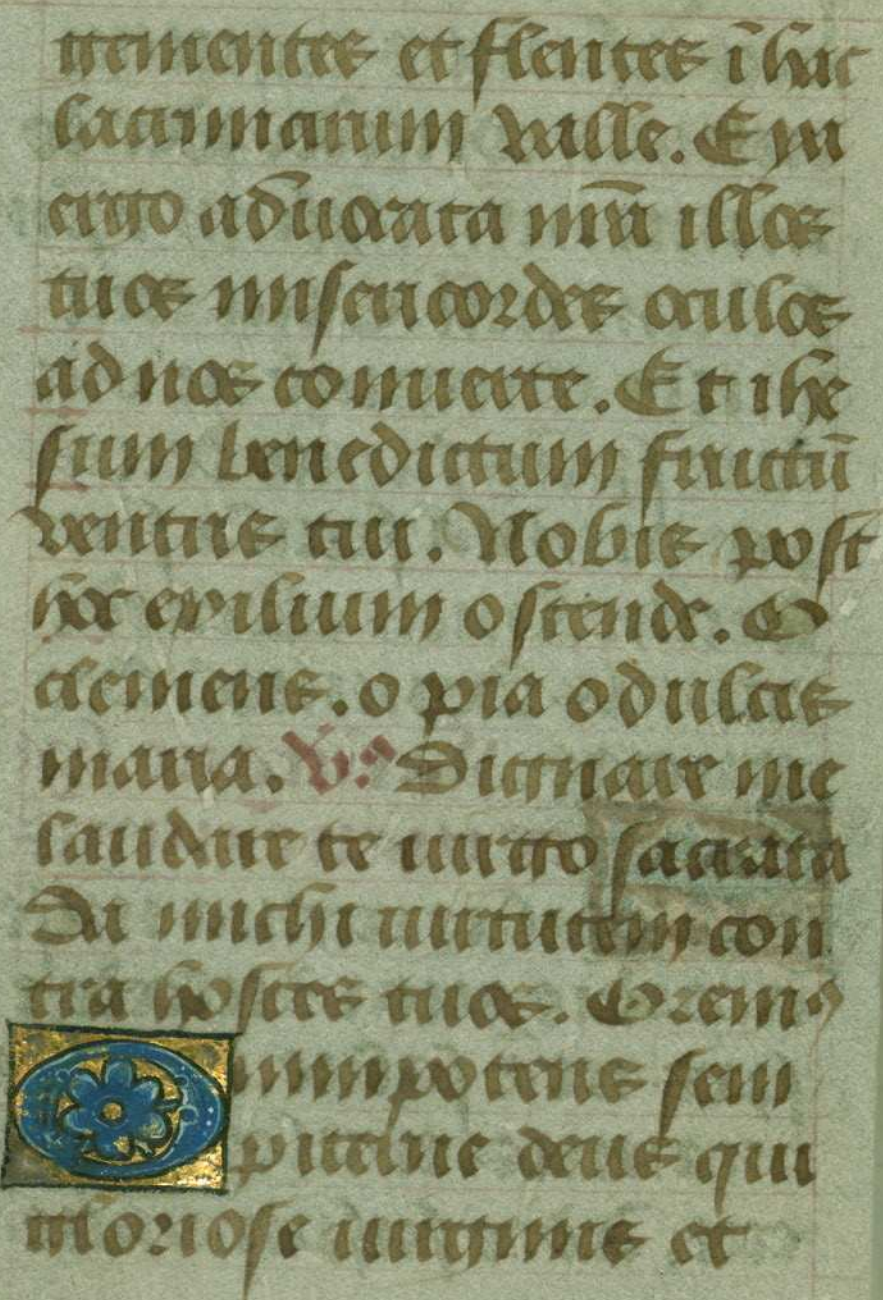 gementes et flentes ī hac
lacrimarum valle. Eya
ergo aduocata nr̄a illos
tuos misericordes oculos
ad nos conuerte. Et ihe
sum benedictum fructū
ventris tui. Nobis post
hoc exilium ostende. O
clemens. o pia o dulcis
maria. V. Dignare me
laudare te uirgo sacrata
Da michi uirtutem con
tra hostes tuos. Oremꝰ
Omnipotens sem
piterne deus qui
gloriose uirginis et